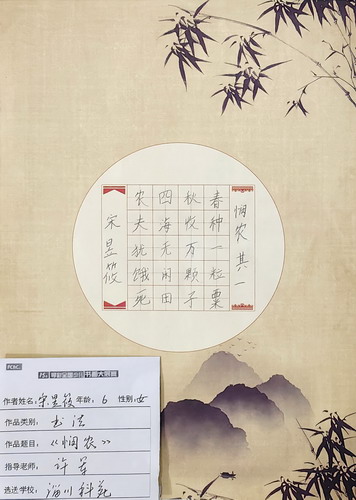 悯农其一
春种一粒粟
秋收万颗子
四海无闲田
农夫犹饿死
宋昱筱
作者姓名:宋昱筱 年龄:6 性别:女
作品类别:书法
作品题目:《悯农》
指导老师:许
选送学校:淄川科苑